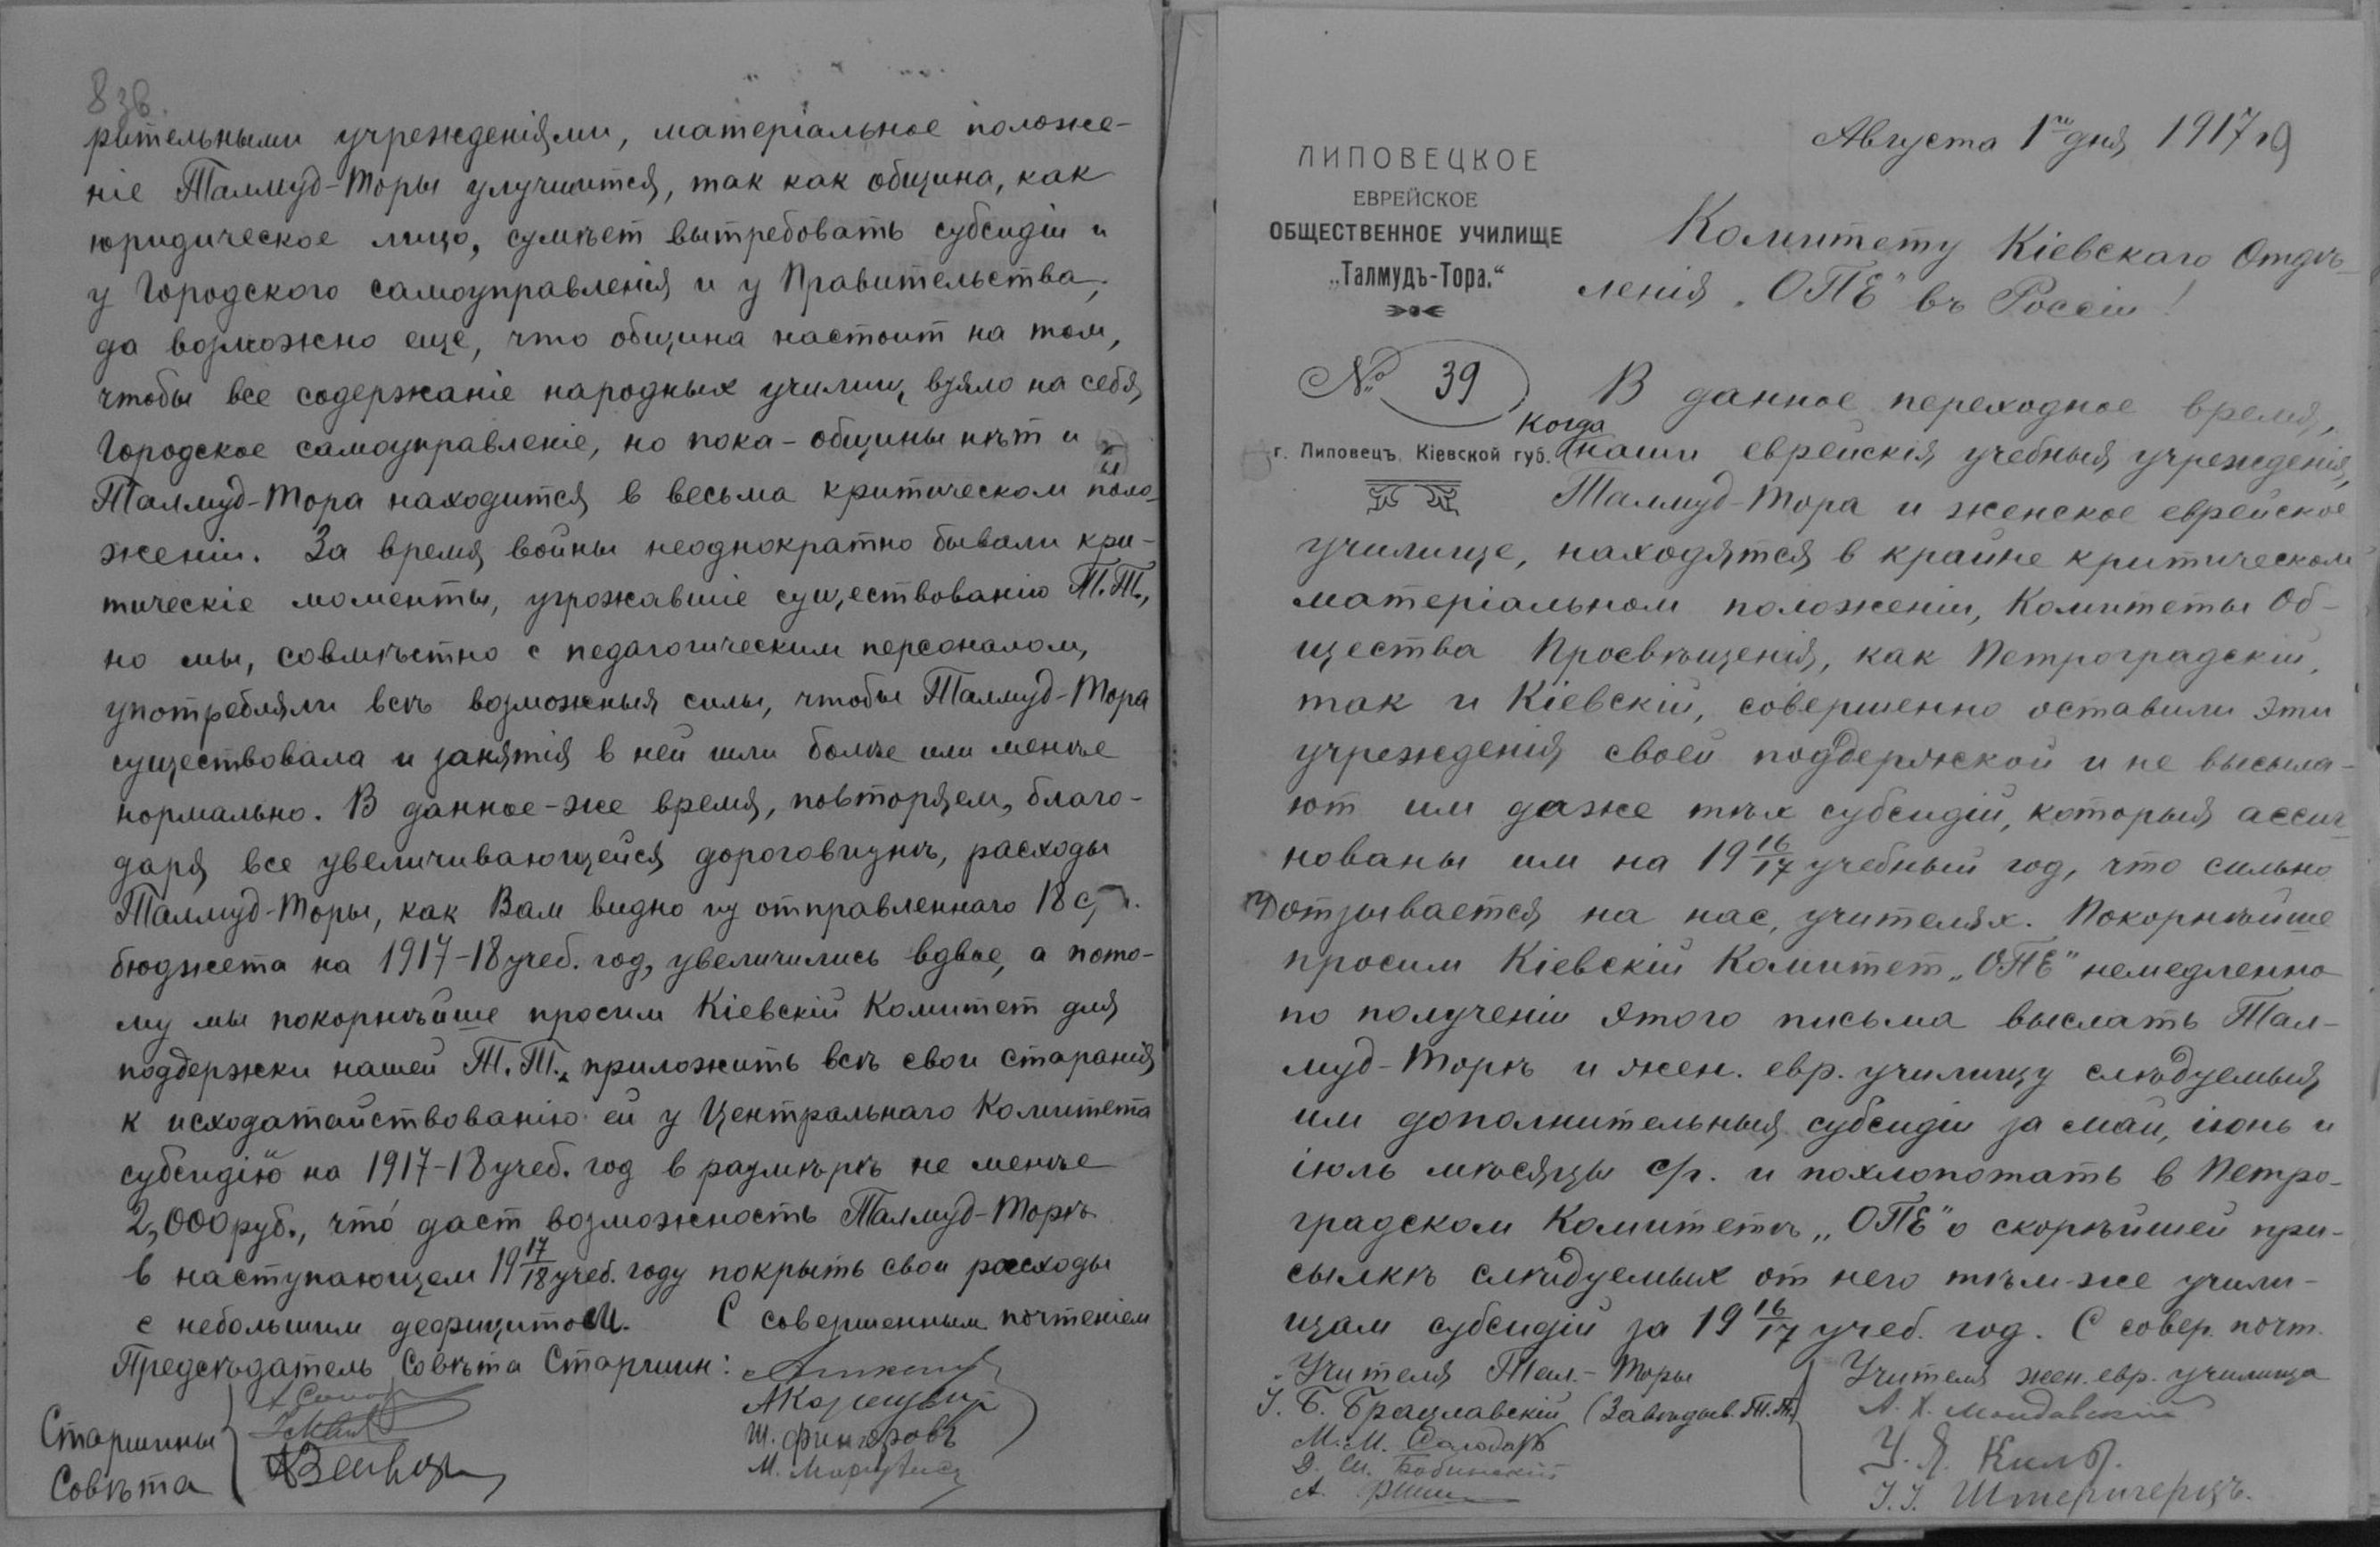 8 зв.
рительными учрежденіями, матеріальное положе-
ніе Талмуд-Торы улучшится, так как община, как
юридическое лицо, сумѣет вытребовать субсидіи и
у Городского самоуправленія и у Правительства,
да возможно еще, что община настоит на том,
чтобы все содержаніе народных училищ взяло на себя
Городское самоуправленіе, но пока-общины нѣт и
Талмуд-Тора находится в весьма критическом поло-
женіи. За время войны неоднократно бывали кри-
тическіе моменты, угрожавшіе существованію Т.Т.,
но мы, совмѣстно с педагогическим персоналом,
употребляли всѣ возможныя силы, чтобы Талмуд-Тора
существовала и занятія в ней шли болѣе или менѣе
нормально. В данное-же время, повторяем, благо-
даря все увеличивающейся дороговизнѣ, расходы
Талмуд-Торы, как Вам видно из отправленнаго 18 с/г.
бюджета на 1917-18 учеб. год, увеличились вдвое, а пото-
му мы покорнѣйше просим Кіевскій Комитет для
поддержки нашей Т.Т. приложить всѣ свои старанія
к исходатайствованію ей у Центральнаго Комитета
субсидію на 1917-18 учеб. год в размѣрѣ не менѣе
2,000 руб., что́ даст возможность Талмуд-Торѣ
в наступающем 19 17/18 учеб. году покрыть свои расходы
с небольшим дефицитом. С совершенным почтеніем
Предсѣдатель Совѣта Старшин:
Старшины
Совѣта
Ш. Фингеровъ
М.
Августа 1го дня 1917 г
ЛИПОВЕЦКОЕ
ЕВРЕЙСКОЕ
ОБЩЕСТВЕННОЕ УЧИЛИЩЕ
„Талмудъ-Тора.“
№ 39
г. Липовецъ, Кіевской губ.
Комитету Кіевскаго Отдѣ-
ленія „ОПЕ" въ Россіи!
В данное переходное время,
когда наши еврейскія учебныя учрежденія,
Талмуд-Тора и женское еврейское
училище, находятся в крайне критическом
матеріальном положеніи, Комитеты Об-
щества Просвѣщенія, как Петроградскій,
так и Кіевскій, совершенно оставили эти
учрежденія своей поддержкой и не высыла-
ют им даже тѣх субсидій, которыя ассиг-
нованы им на 19 16/17 учебный год, что сильно
отзывается на нас, учителях. Покорнѣйше
просим Кіевскій Комитет „ОПЕ" немедленно
по полученіи этого письма выслать Тал-
муд-Торѣ и жен. евр. училищу слѣдуемыя
им дополнительныя субсидіи за май, іюнь и
іюль мѣсяцы с/г. и похлопотать в Петро-
градском Комитетѣ „ОПЕ" о скорѣйшей при-
сылкѣ слѣдуемых от него тѣм-же учили-
щам субсидій за 19 16/17 учеб. год. С совер. почт.
Учителя Тал.-Торы
І. Б. Брацлавскій (Завѣдыв. Т.Т.)
М. М. Солодарь
Д. Ш. Бабинскій
А.
Учителя жен. евр. училища
А. Х. Молдавскій
І. І. Штернгерцъ.